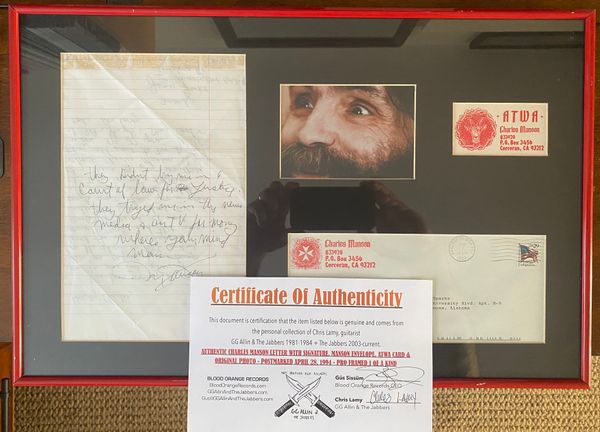 they didn't try me in a
Court of law for Justice.
they tryed me in the news
media & on TV for money
wheres your mind
man
ATWA
Charles Manson
B33920
P.O. Box 3456
Corcoran, CA 93212
Charles Manson
B33920
P.O. Box 3456
Corcoran, CA 93212
29
Sparks
University Blvd. Apt.
Alabama
Certificate Of Authenticity
This document is certification that the item listed below is genuine and comes from
the personal collection of Chris Lamy, guitarist
GG Allin & The Jabbers 1981-1984 + The Jabbers 2003-current.
AUTHENTIC CHARLES MANSON LETTER WITH SIGNATURE, MANSON ENVELOPE, ATWA CARD &
ORIGINAL PHOTO - POSTMARKED APRIL 28, 1994 - PRO FRAMED 1 OF A KIND
BLOOD ORANGE RECORDS
BloodOrangeRecords.com
GGAllinAndTheJabbers.com
Gus@GGAllinAndTheJabbers.com
GG ALLIN &
THE JABBERS
Güs Sissüm
Blood Orange Records CEO
Chris Lamy
GG Allin & The Jabbers
Chris Lamy